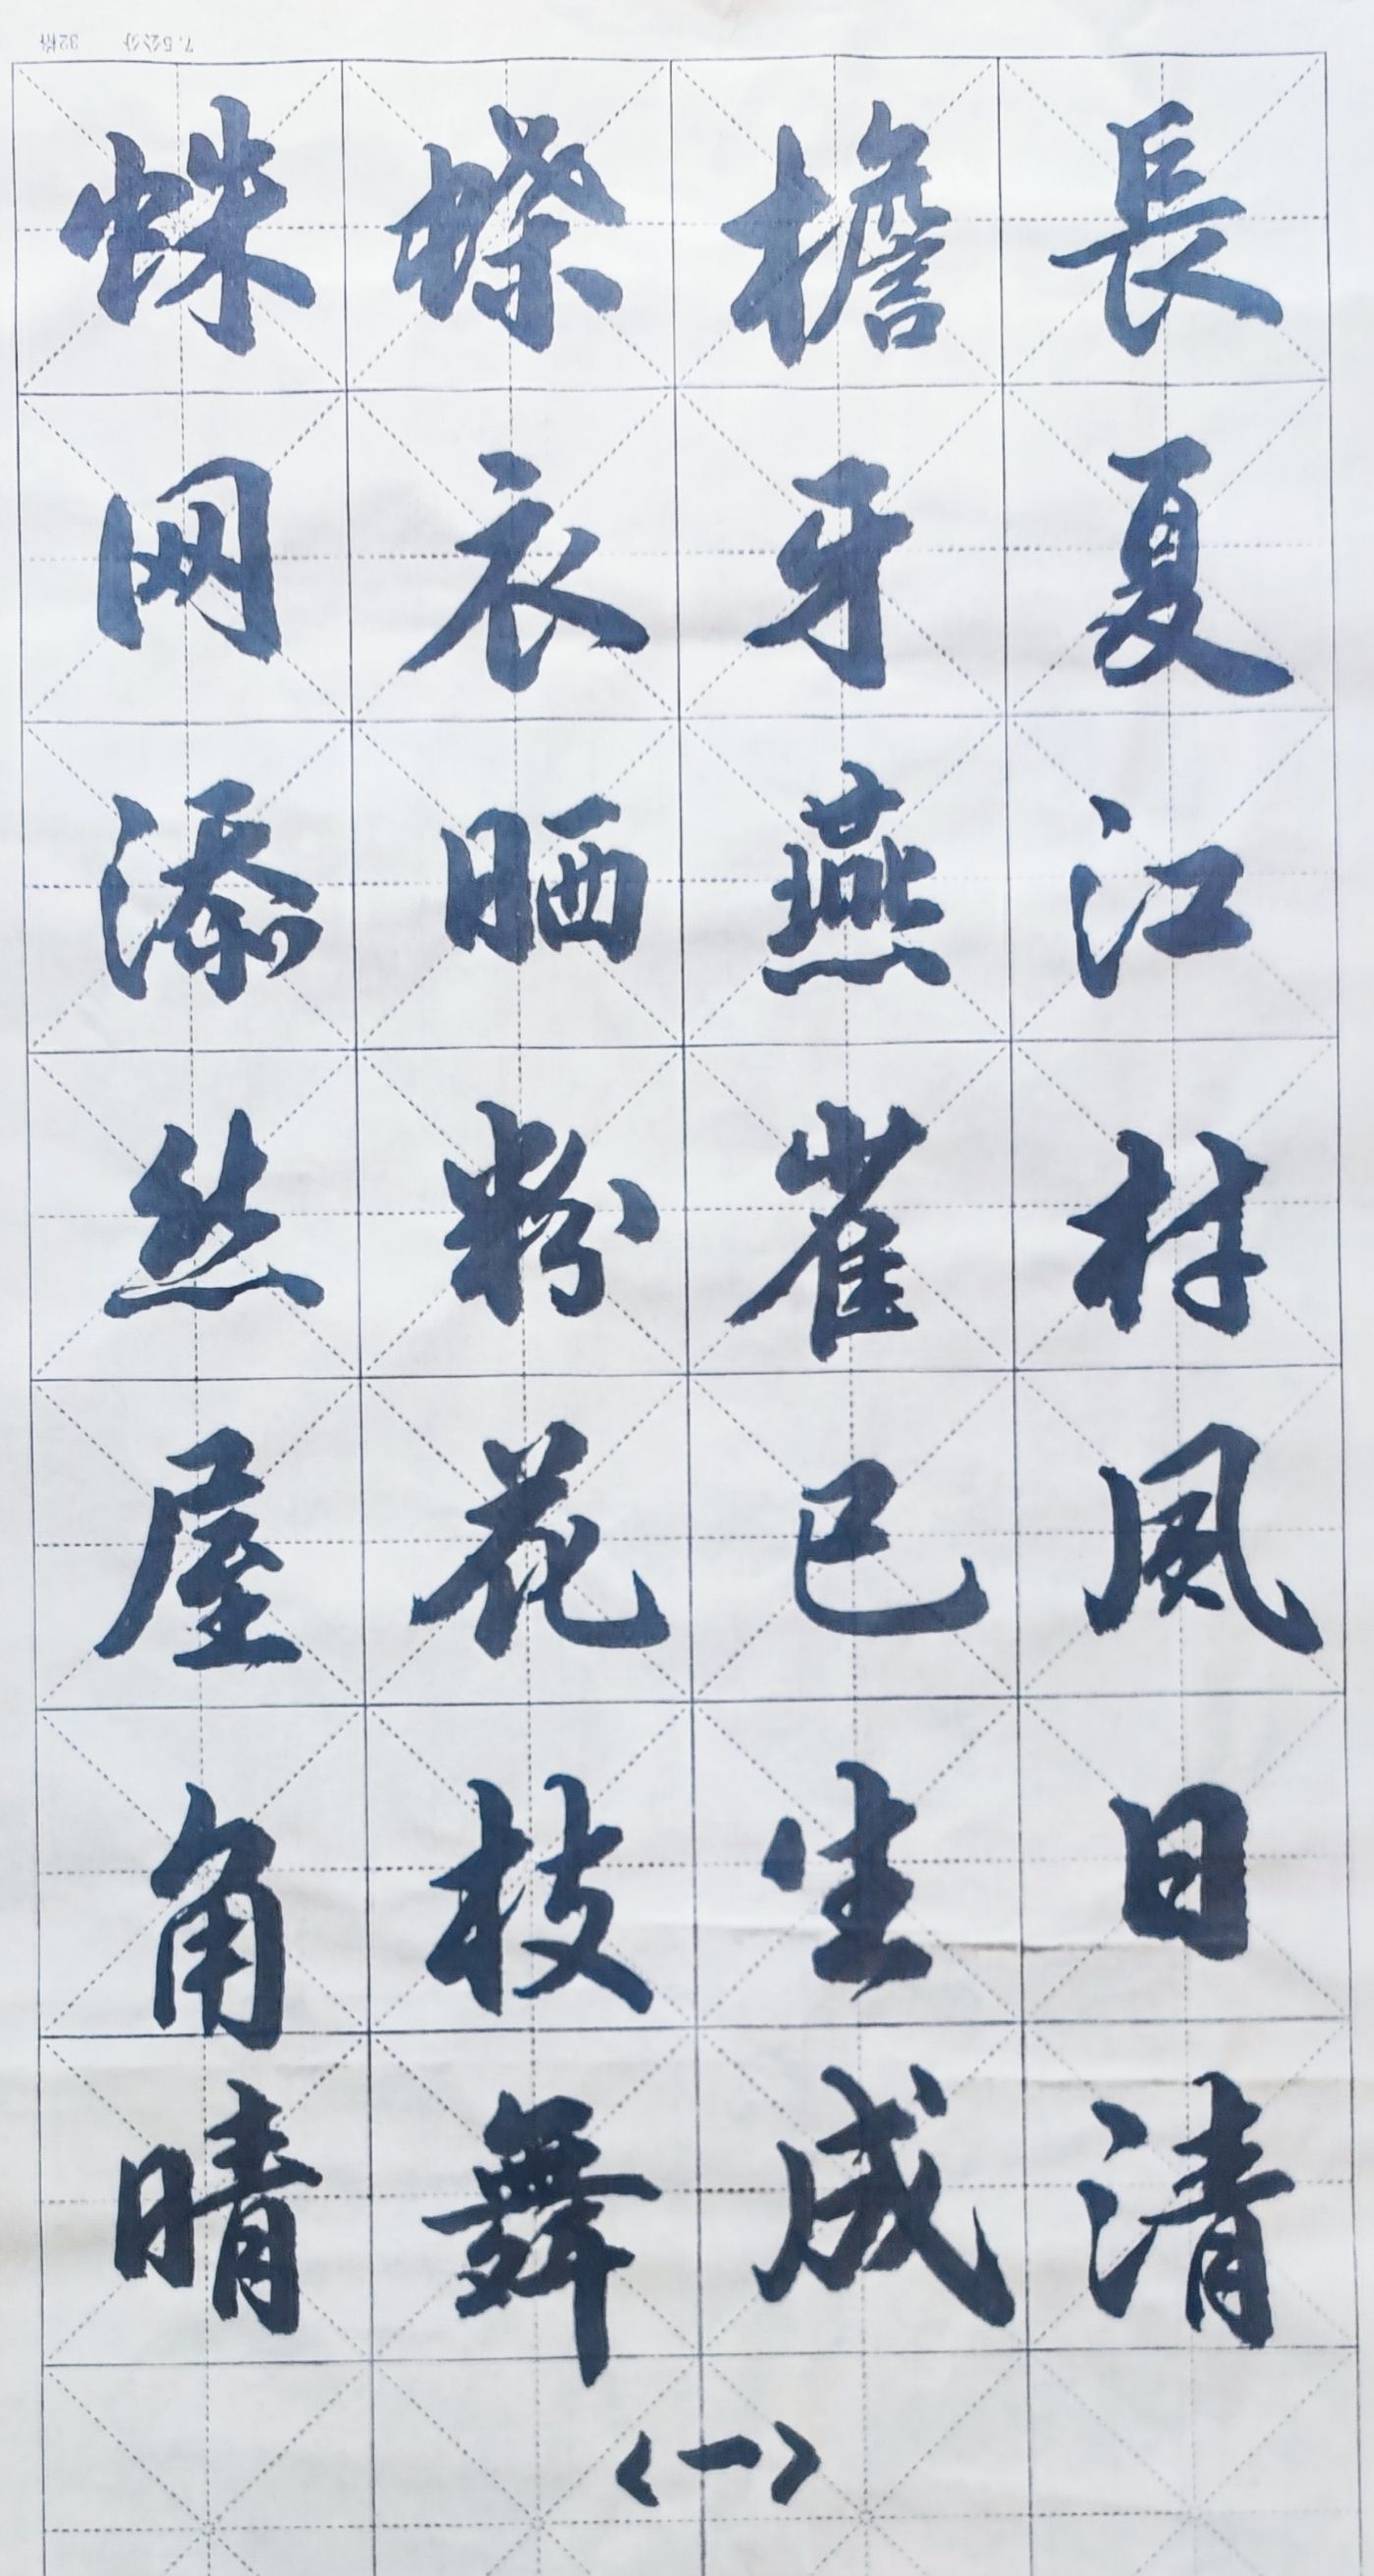 7.5公分 32格
長夏江村风日清
檐牙燕雀已生成
蝶衣晒粉花枝舞
蛛网添丝屋角晴
〈一〉